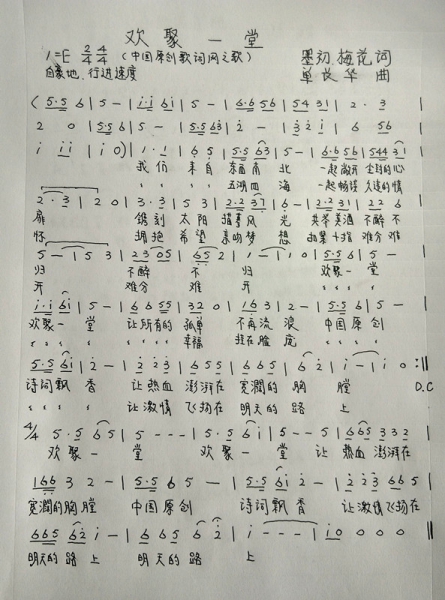 欢聚一堂
1=E 2/4 4/4 (中国原创歌词网之歌) 墨初梅花词
自豪地、行进速度 单长华 曲
(5·5 6 | 5 — | i·i 6i | 5 — | 6·6 56 | 54 31 | 2 · 3 |
2 0 | 5·5 6 | 5 — | 5·5 63 | 2 — | 3 2 1 | 6 56 |
i ii | i 0) | 1 · 1 | 6 5 | 5·5 63 | 5 — | 6·6 56 | 544 31 |
我们 来自 东西南 北 一起敞开 尘封的心
五湖四 海 一起畅谈 久违的情
2 · 3 | 2 0 | 3 · 3 | 5 3 | 2·2 37 | 6 — | 2·2 31 | 2 2 6 |
扉 镌刻 太阳 描摹风 光 共举美酒 不醉不
怀 拥抱 希望 亲吻梦 想 难分难
5 — | 5 3 | 2 3 05 | 65 2 | 1 — | 1 0 | 5·5 6 | 5 — |
归 不醉 不 归 欢聚一 堂
开 难分 难 开
i·i 6i | 5 — | 6 6 55 | 32 0 | 16 3 | 2 — | 5·5 6 | 5 — |
欢聚一 堂 让所有的 孤单 不再流 浪 中国原 创
幸福
5·5 6i | 2 — | 2 2 3 | 665 5 | 665 5 | 6 2 | i — | i 0 :||
诗词飘 香 让热血 澎湃在 宽阔的 胸 膛 D.C
让激情 飞扬在 明天的 路 上
4/4 5 · 5 6 5 | 5 — — — | 5 · 5 6 i | 5 — — 5 | 665 3 3 2 |
欢聚一 堂 欢聚一 堂 让 热血 澎湃在
166 3 2 — | 5·5 6 5 — | 5·5 6i 2 — | 2 2 3 6 6 5 |
宽阔的胸膛 中国原创 诗词飘香 让激情飞扬在
665 6 2 i — | 6 6 5 6 2 | i — — — | i 0 0 0 0 ||
明天的路 上 明天的 路 上